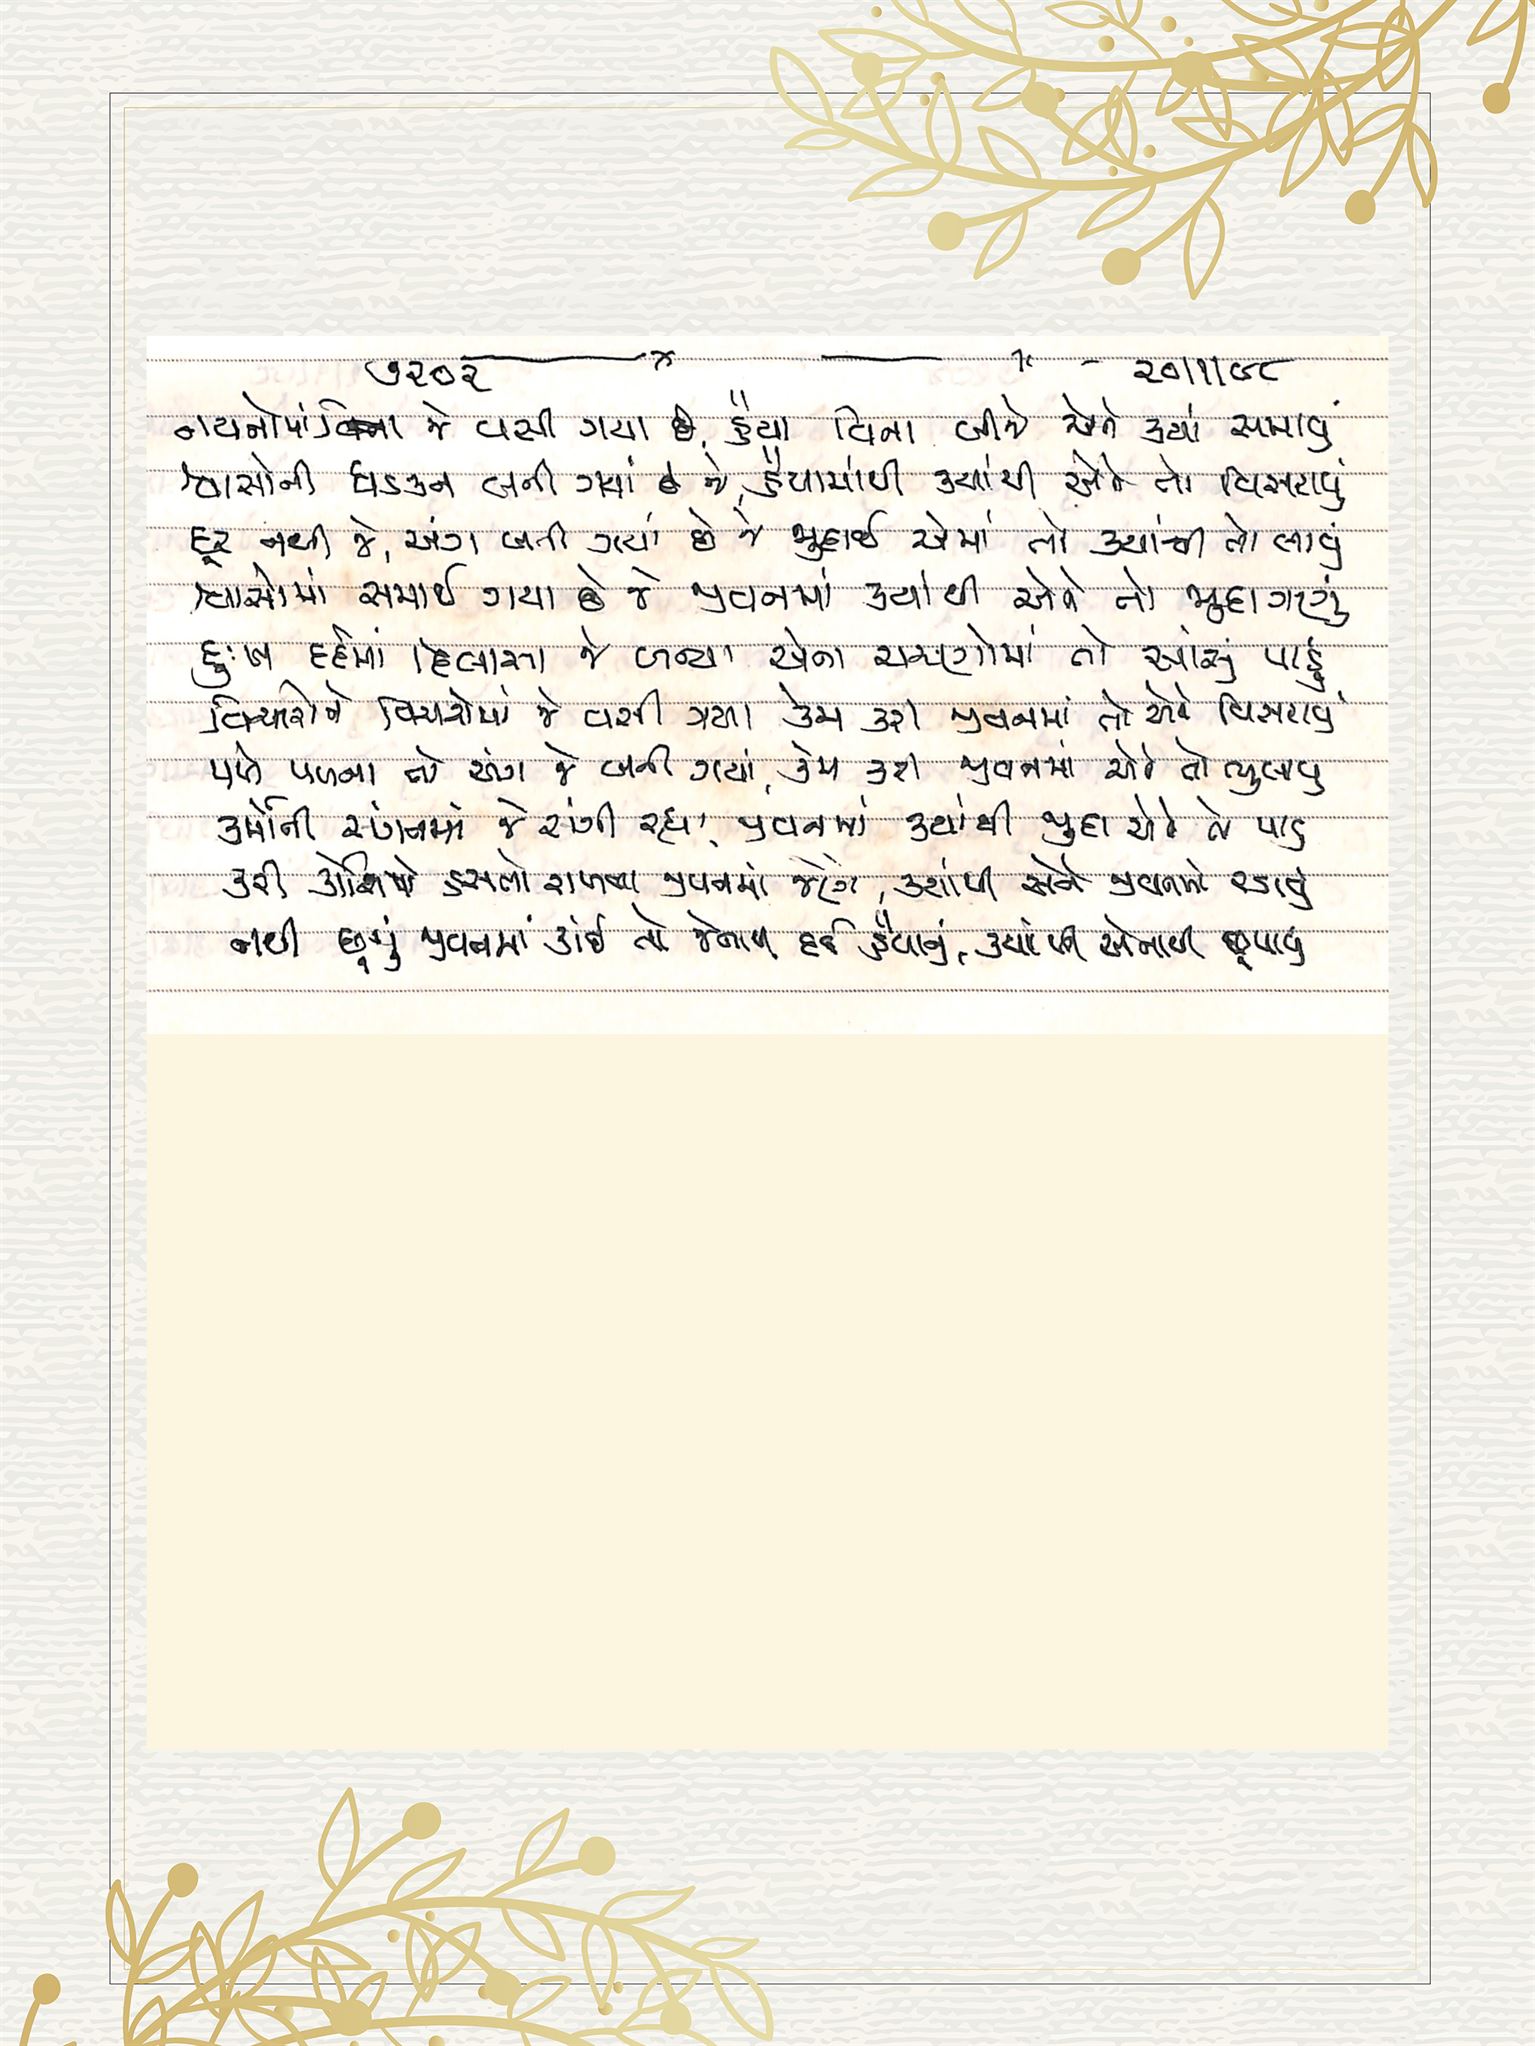 ૭૨૦૨ ૨૦/૧/૯૮
નયનોમાં જે વસી ગયા છે, હૈયા વિના બીજે એને ક્યાં સમાવું
શ્વાસોની ધડકન બની ગયાં છે જે, હૈયામાંથી ક્યાંથી એને તો વિસરાવું
દૂર નથી જે, અંગ બની ગયાં છે જે જુદાઈ એમાં તો ક્યાંથી તો લાવું
શ્વાસોમાં સમાઈ ગયા છે જે જીવનમાં ક્યાંથી એને તો જુદા ગણું
દુઃખ દર્દમાં દિલાસા જે બન્યા એના ચરણોમાં તો આંસું પાડું
વિચારોને વિચારોમાં જે વસી ગયા કેમ કરી જીવનમાં તો એને વિસરાવું
પળે પળના તો અંગ જે બની ગયાં, કેમ કરી જીવનમાં એને તો ભુલાવુ
કર્મોની રંગતમાં જે રંગી રહ્યા, જીવનમાં ક્યાંથી જુદા એને તો પાડુ
કરી કોશિષો હસતો રાખવા જીવનમાં જેણે, ક્યાંથી એને જીવનમાં રડાવું
નથી છૂપું જીવનમાં કાંઈ તો જેનાથી દર્દ હૈયાનું, ક્યાંથી એનાથી છૂપાવુ